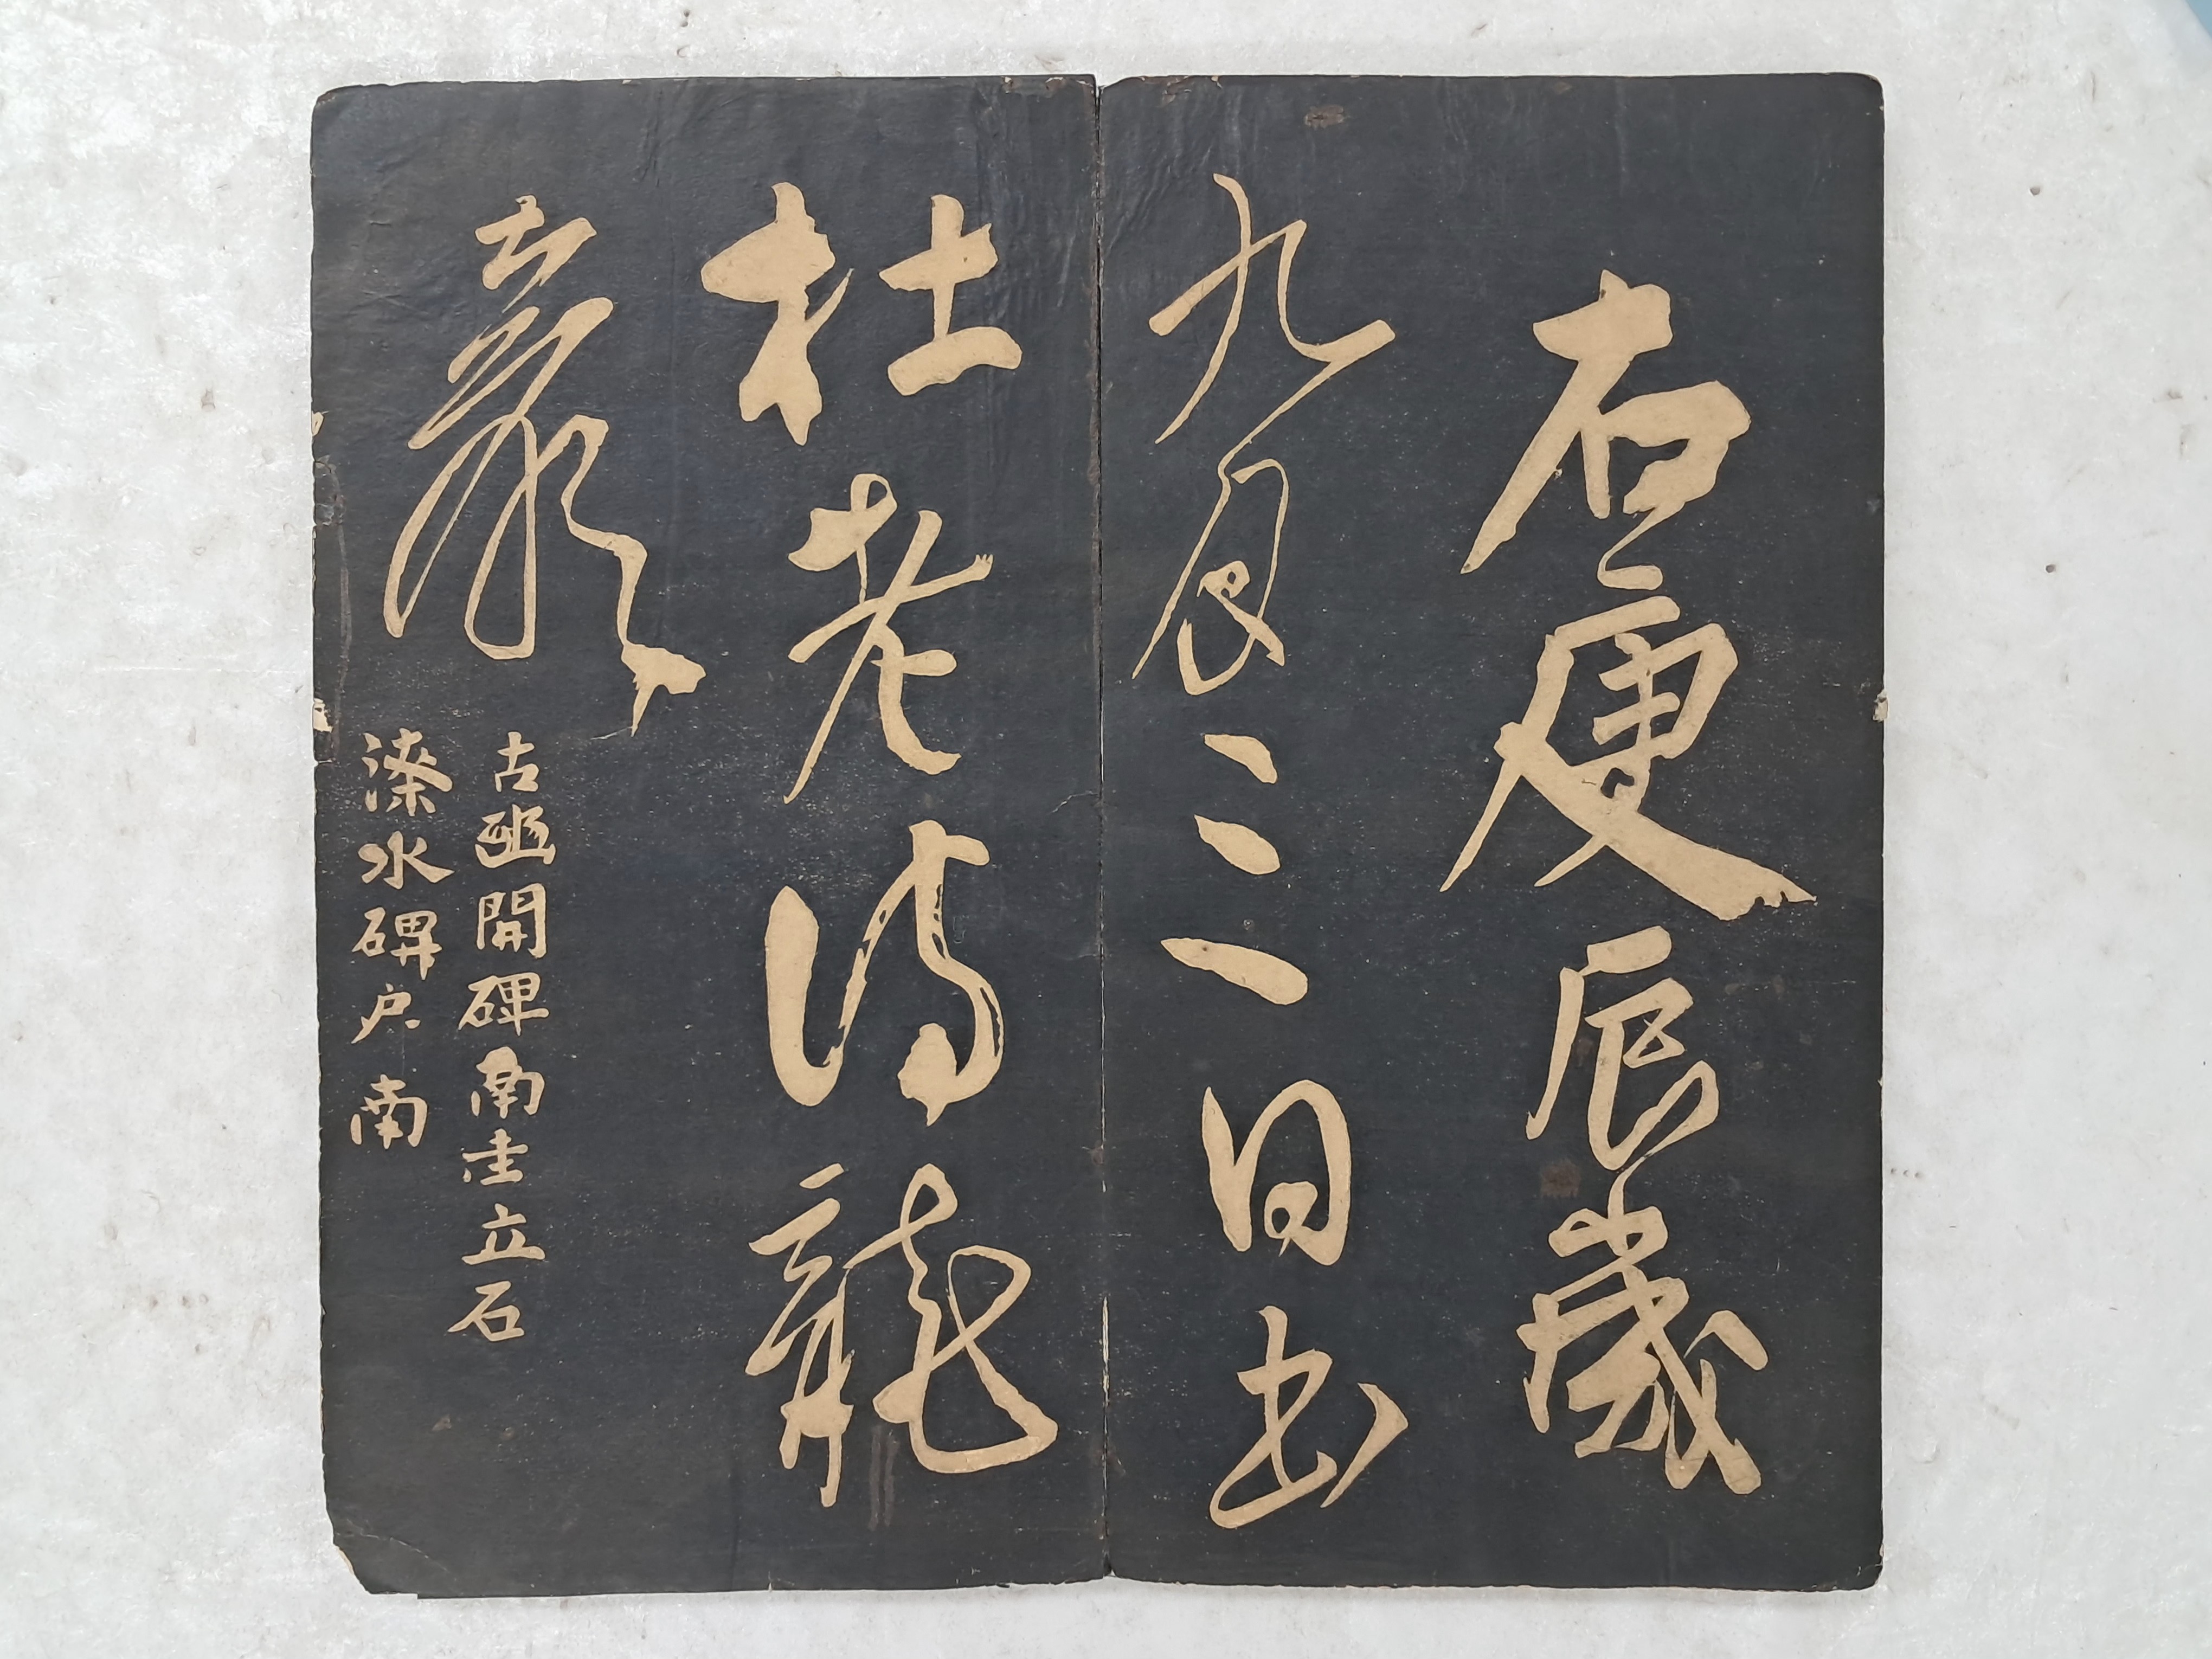 右庚辰歲
九月三日書
杜老詩龍
巖
古開碑南圭立石
水碑户南